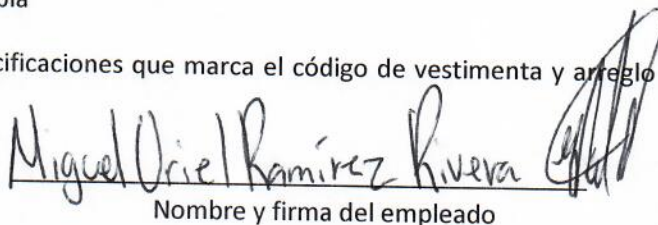 cificaciones que marca el código de vestimenta y arreglo
Miguel Uriel Ramírez Rivera
Nombre y firma del empleado